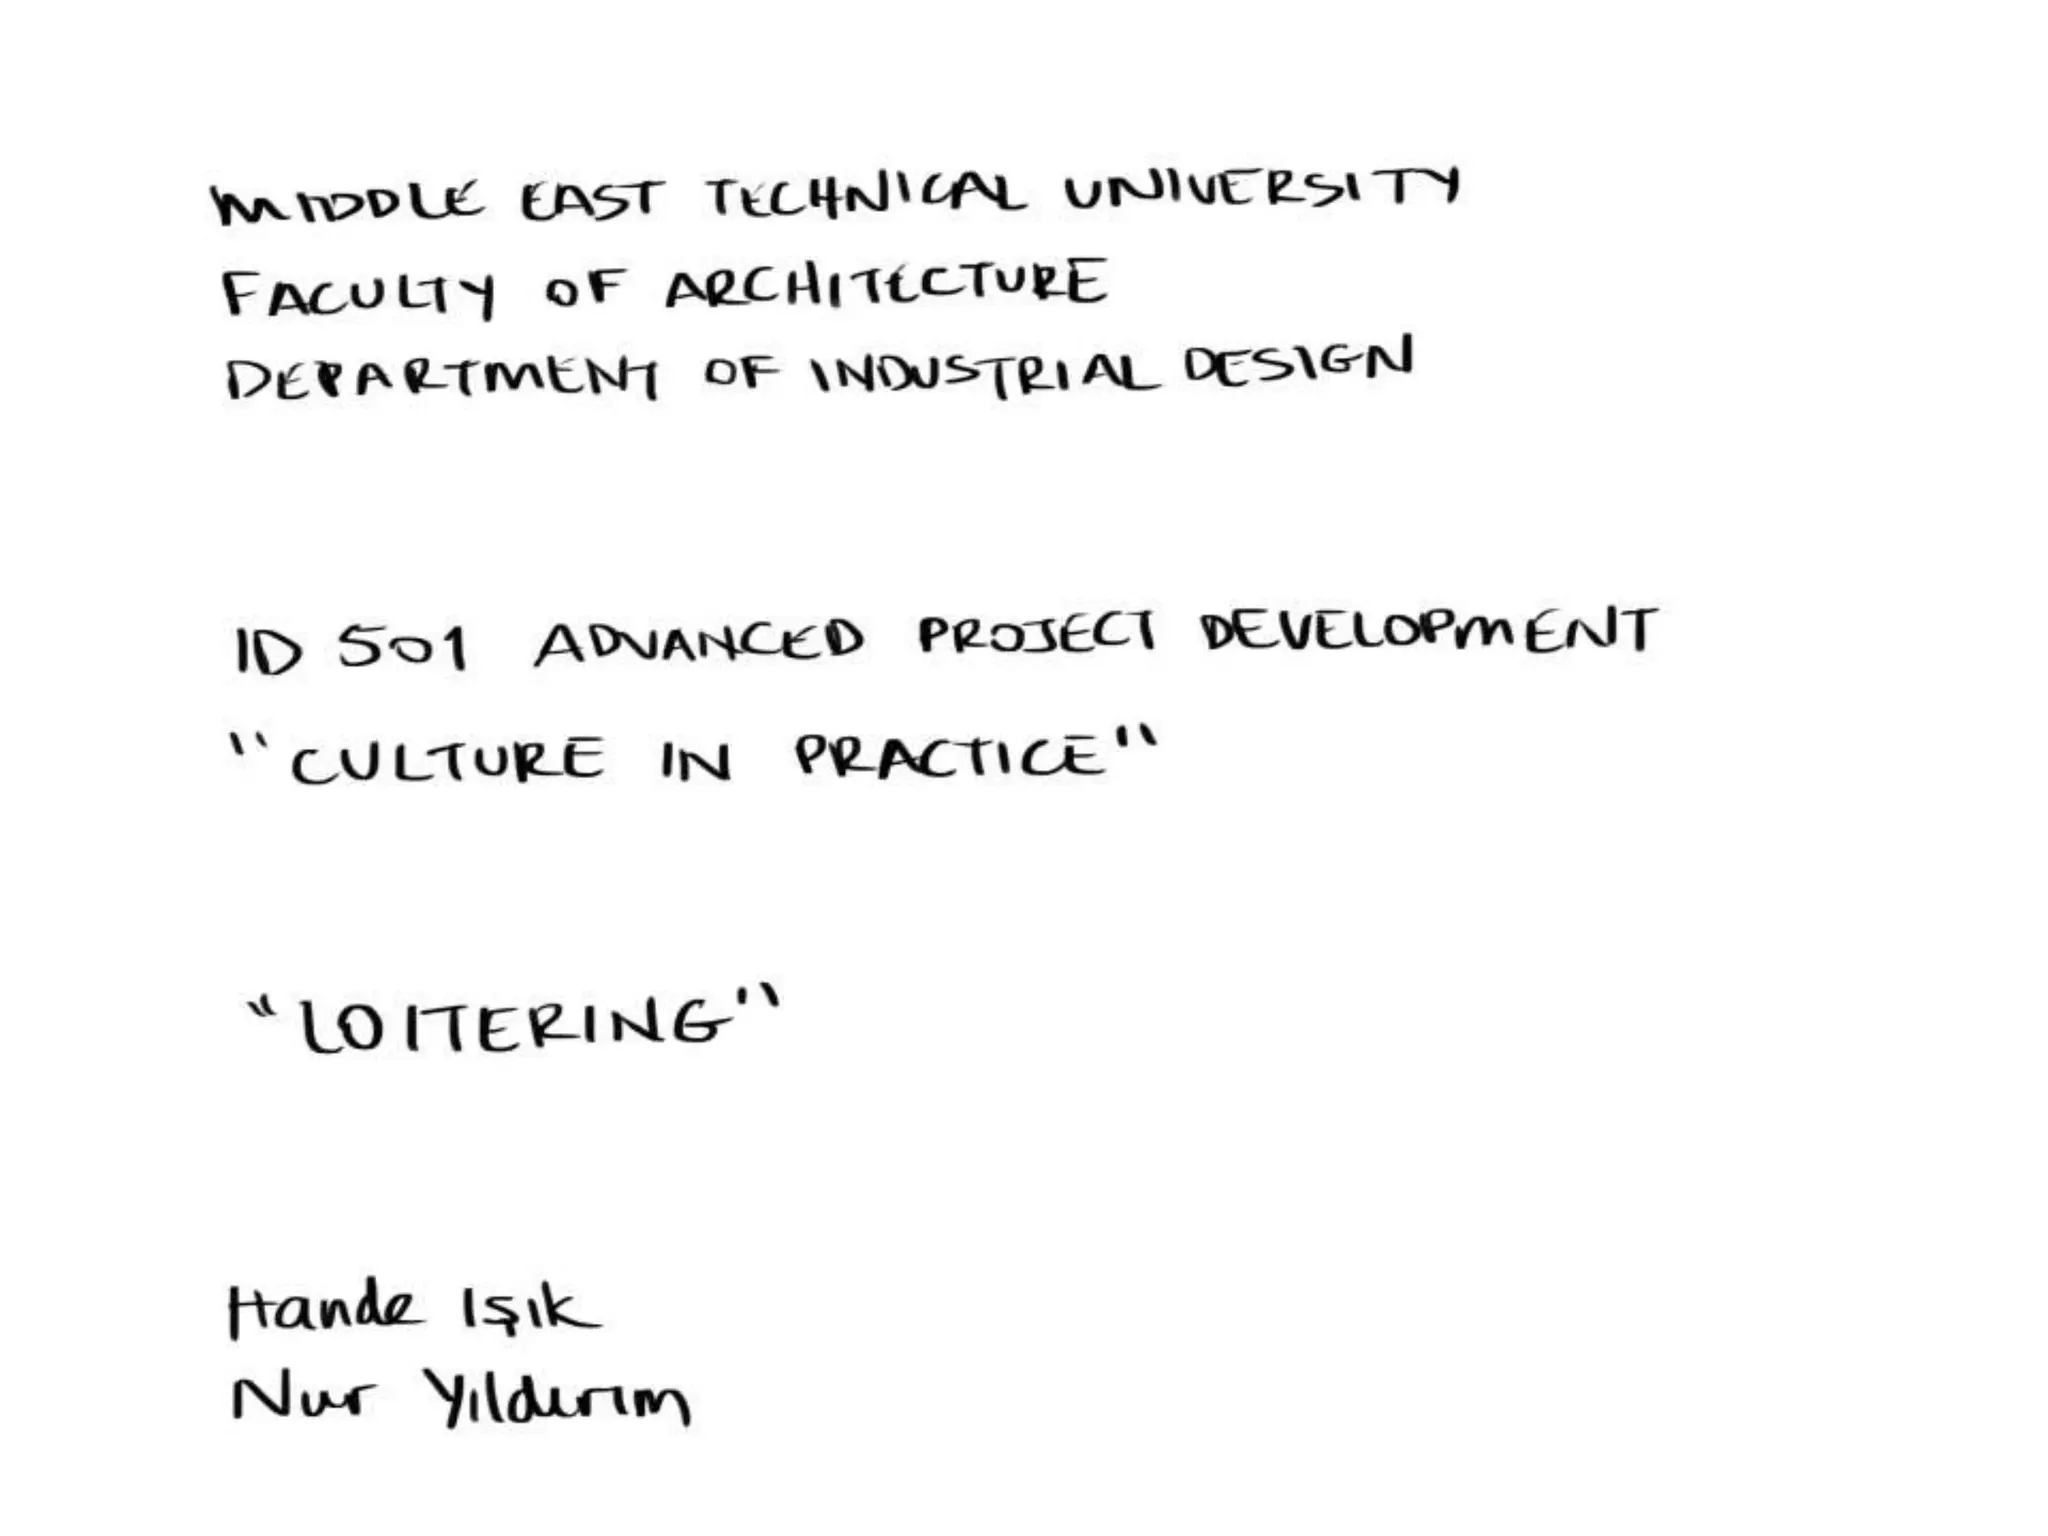 MIDDLE EAST TECHNICAL UNIVERSITY
FACULTY OF ARCHITECTURE
DEPARTMENT OF INDUSTRIAL DESIGN
ID 501 ADVANCED PROJECT DEVELOPMENT
"CULTURE IN PRACTICE"
"LOITERING"
Hande Işık
Nur Yıldırım